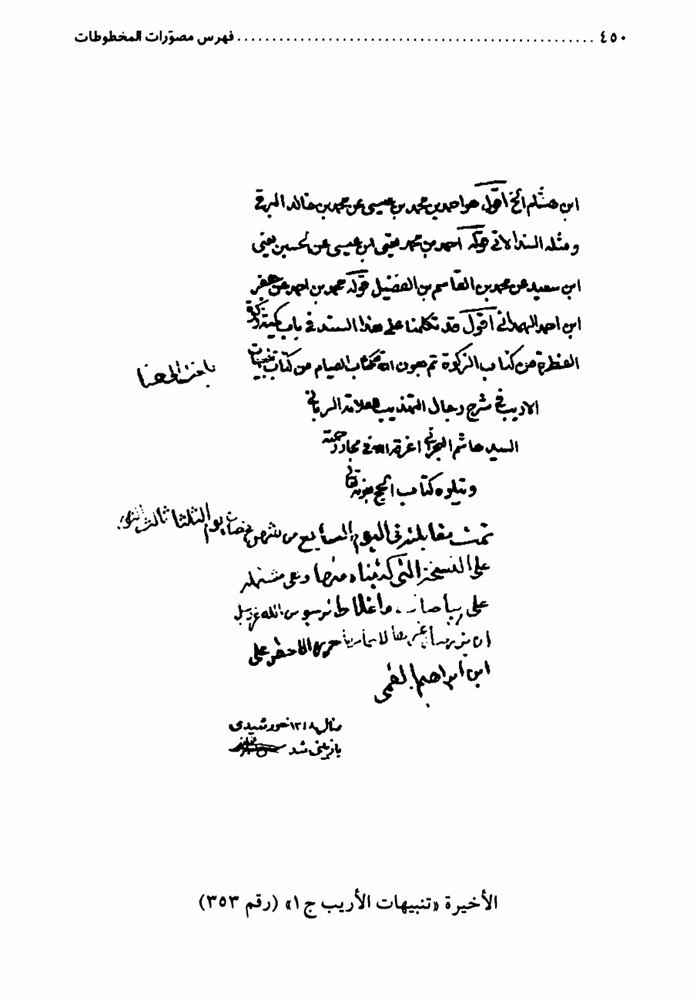 ٤٥٠ .................................................. فهرس مصوّرات المخطوطات
ابن هشام الخ اقول هو احمد بن محمد بن عيسى عن محمد بن خالد البرقي
ومثله السند الاتي قوله احمد بن محمد يعني ابن عيسى عن الحسين يعني
ابن سعيد عن محمد بن القاسم بن الفضيل قوله محمد بن احمد عن جعفر
ابن احمد الهمداني اقول قد تكلمنا على هذا السند في باب كمية زكوة
الفطرة من كتاب الزكوة تم بعون الله كتاب الصيام من كتاب تنبيهات
بلغت الى هنا
الاديب في شرح رجال التهذيب للعلامة الرباني
السيد هاشم البحراني اغرقه الله في بحار رحمته
ويتلوه كتاب الحج بعونه تعالى
تمت مقابلته في اليوم السابع من شهر رمضان يوم الثلثا ثالث
على النسخة التي كتبناه منها وهي مشتملة
على واغلاط الله عز وجل
ان الاحقر على
ابن ابراهيم القمي
سال ١٣١٨ خورشيدى
بازبينى شد
الأخيرة «تنبيهات الأريب ج ١» (رقم ٣٥٣)